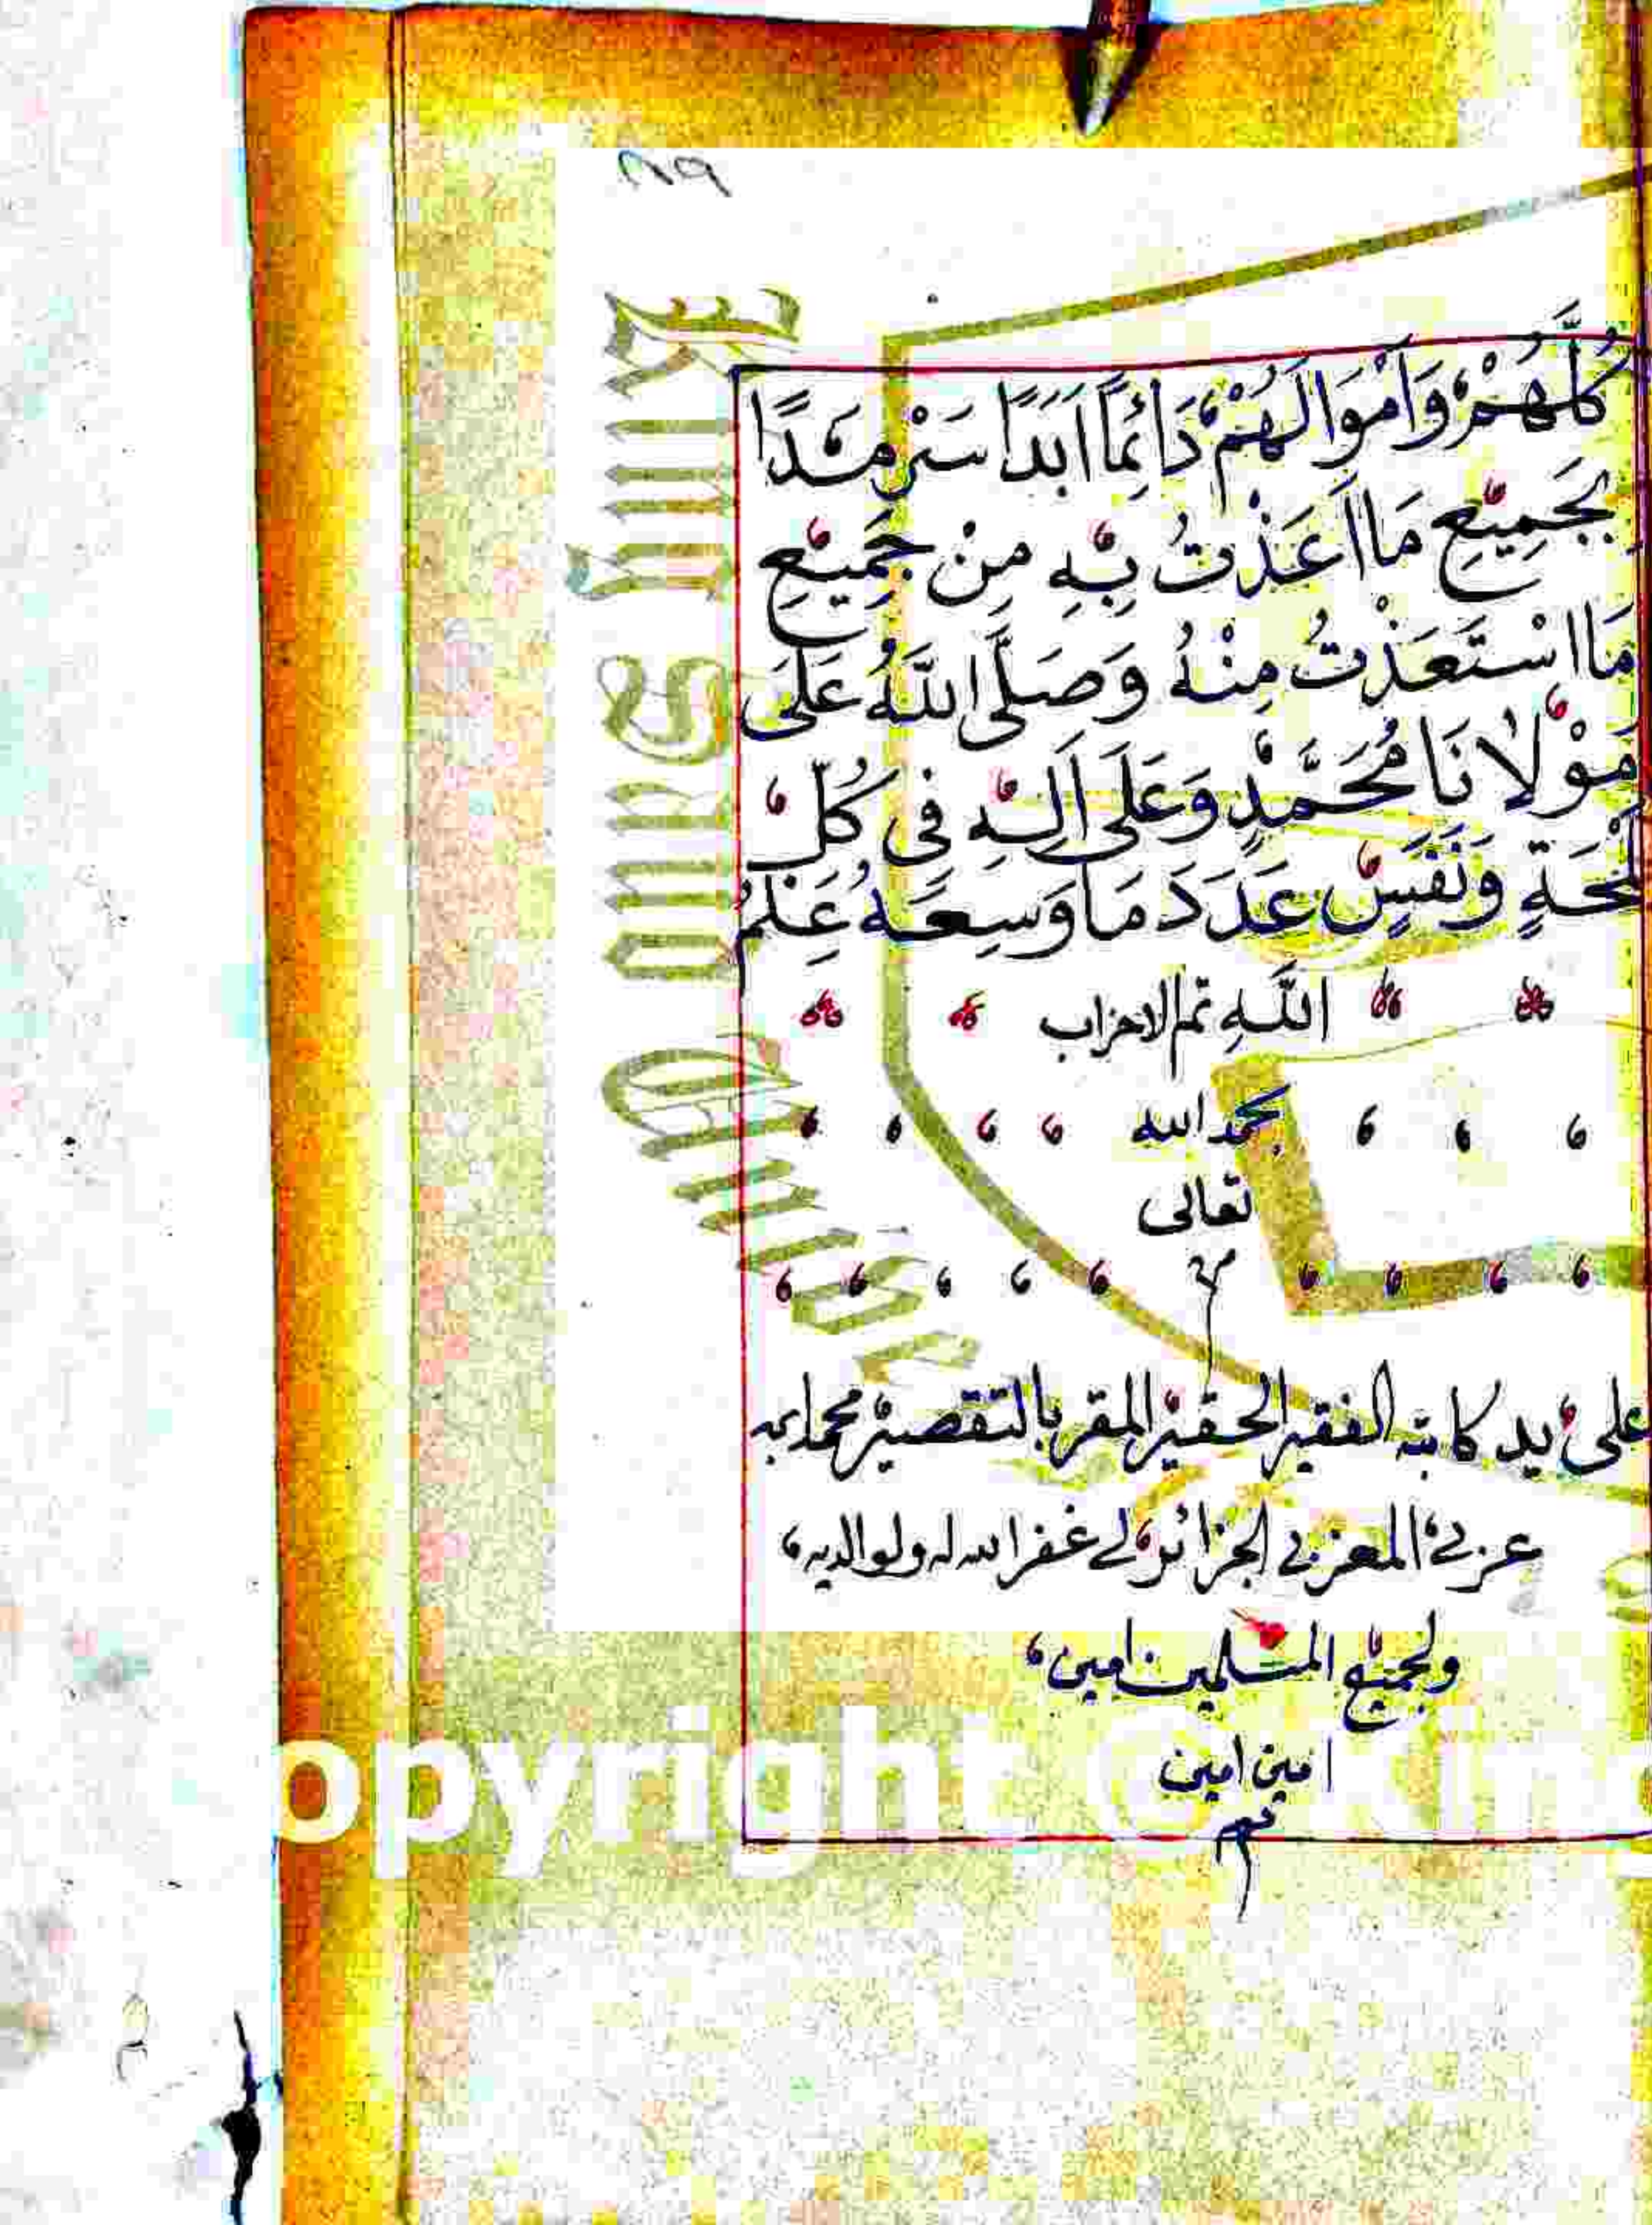 ٨٩
كُلِّهُمْ وَأَمْوَالَهُمْ دَائِمًا اَبَدًا سَرْمَدًا
بِجَمِيْعِ مَا اَعَذْتُ بِهِ مِنْ جَمِيْعِ
مَا اسْتَعَذْتُ مِنْهُ وَصَلَّى اللَّهُ عَلَى
مَوْلَانَا مُحَمَّدٍ وَعَلَى اَلِهِ فِى كُلِّ
لَمْحَةٍ وَنَفَسٍ عَدَدَ مَا وَسِعَهُ عِلْمُ
اللَّهِ تم الاحزاب
بحمد الله
تعالى
م
على يد كاتبه الفقير الحقير المقر بالتقصير محمد
عربي المغربي الجزائرلي غفر الله له ولوالديه
ولجميع المسلمين امين
امين امين
opyright © King